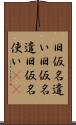 旧仮名遣
い旧仮名
遣旧仮名
使い